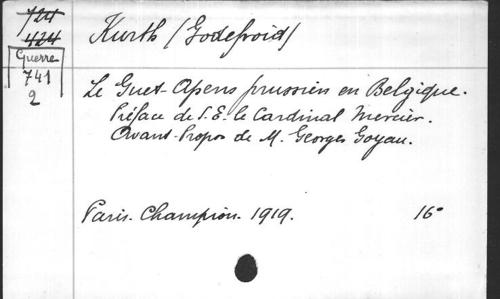 724
424
Guerre
741
2
Kurth (Godefroid)
Le Guet-Apens prussien en Belgique.
Préface de S. E. le Cardinal Mercier.
Avant-Propos de M. Georges Goyau.
Paris. Champion. 1919. 16°